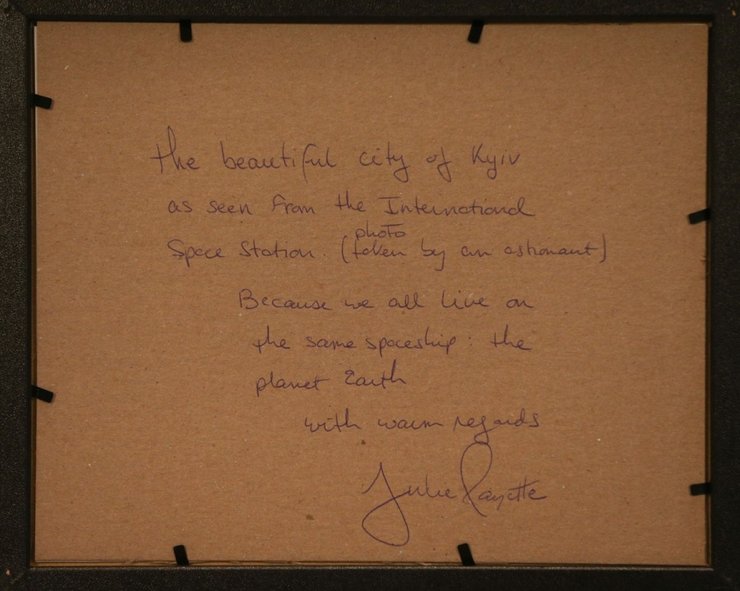 the beautiful city of Kyiv
as seen from the International
photo
Space Station. (taken by an astronaut)
Because we all live on
the same spaceship: the
planet Earth
with warm regards
Julie Payette